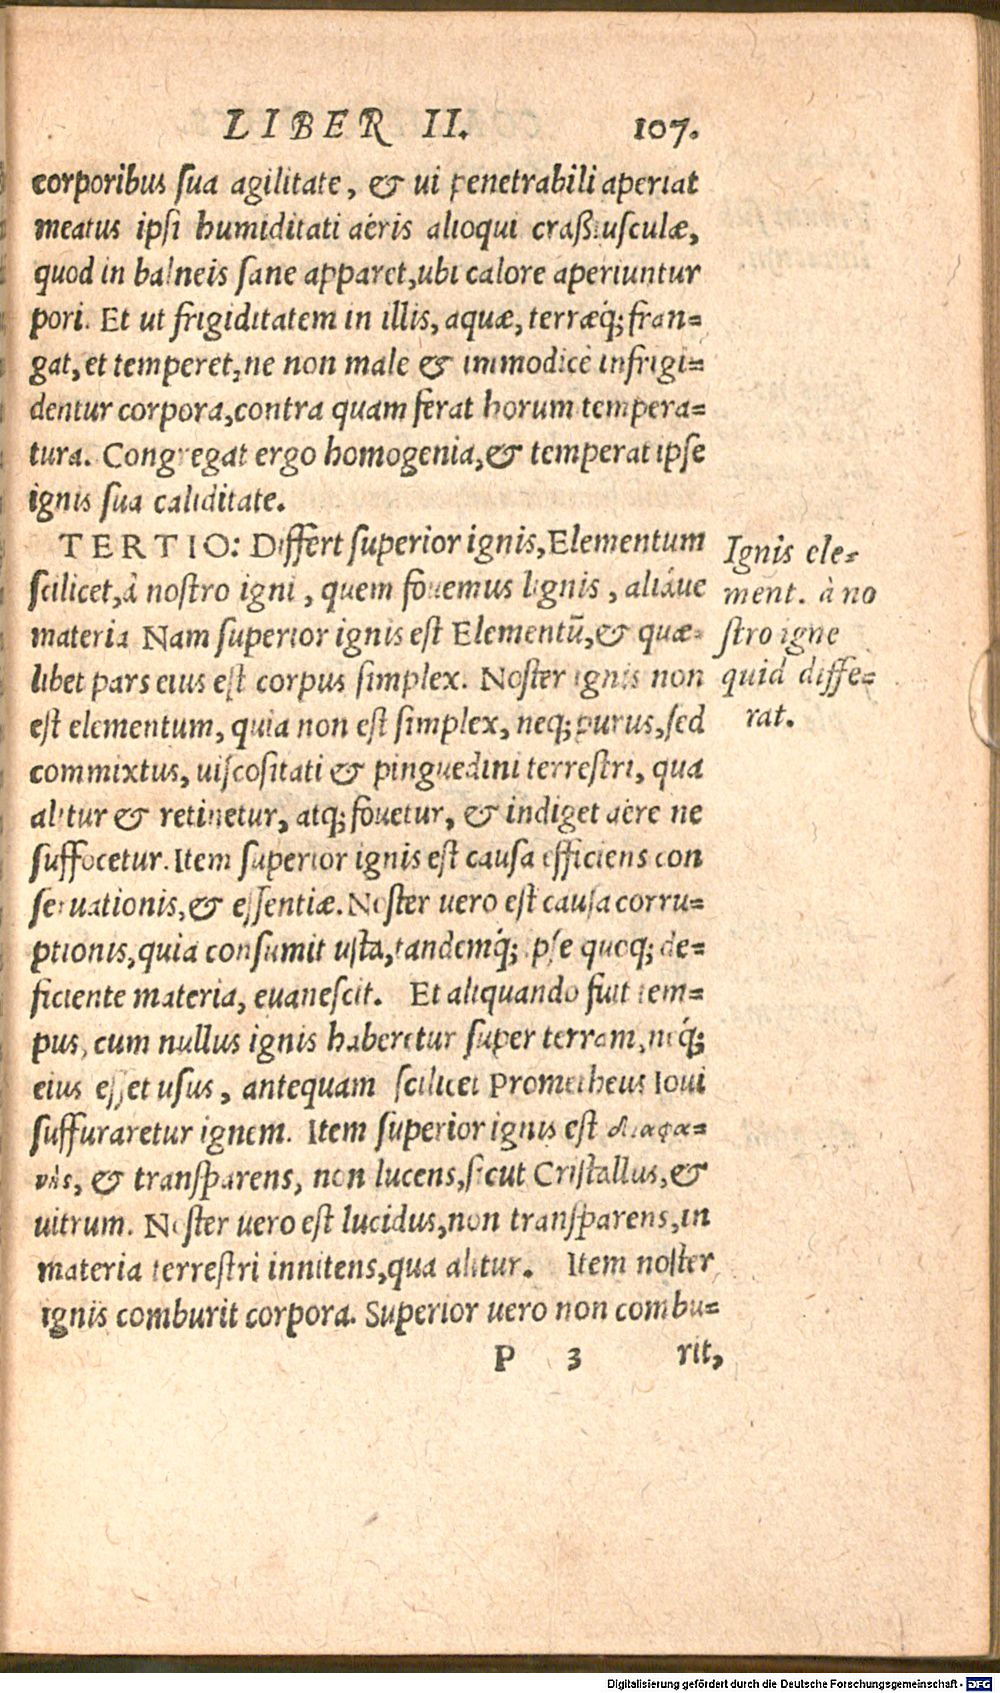 LIBER II. 107.
corporibus sua agilitate, & ui penetrabili aperiat
meatus ipsi humiditati aëris alioqui craßiusculæ,
quod in balneis sane apparet, ubi calore aperiuntur
pori. Et ut frigiditatem in illis, aquæ, terræq́; fran=
gat, et temperet, ne non male & immodicè infrigi=
dentur corpora, contra quam ferat horum tempera=
tura. Congregat ergo homogenia, & temperat ipse
ignis sua caliditate.
TERTIO: Differt superior ignis, Elementum
scilicet, à nostro igni, quem fouemus lignis, aliáue
materia Nam superior ignis est Elementū, & quæ=
libet pars eius est corpus simplex. Noster ignis non
est elementum, quia non est simplex, neq; purus, sed
commixtus, uiscositati & pinguedini terrestri, qua
alitur & retinetur, atq; fouetur, & indiget aëre ne
suffocetur. Item superior ignis est causa efficiens con
seruationis, & essentiæ. Noster uero est causa corru=
ptionis, quia consumit usta, tandemq́; ipse quoq; de=
ficiente materia, euanescit. Et aliquando fuit tem=
pus, cum nullus ignis haberetur super terram, neq́;
eius esset usus, antequam scilicet Prometheus Ioui
suffuraretur ignem. Item superior ignis est διαφα=
νὴς, & transparens, non lucens, sicut Cristallus, &
uitrum. Noster uero est lucidus, non transparens, in
materia terrestri innitens, qua alitur. Item noster
ignis comburit corpora. Superior uero non combu=
P 3 rit,
Ignis ele=
ment. à no
stro igne
quid diffe=
rat.
Digitalisierung gefördert durch die Deutsche Forschungsgemeinschaft - DFG